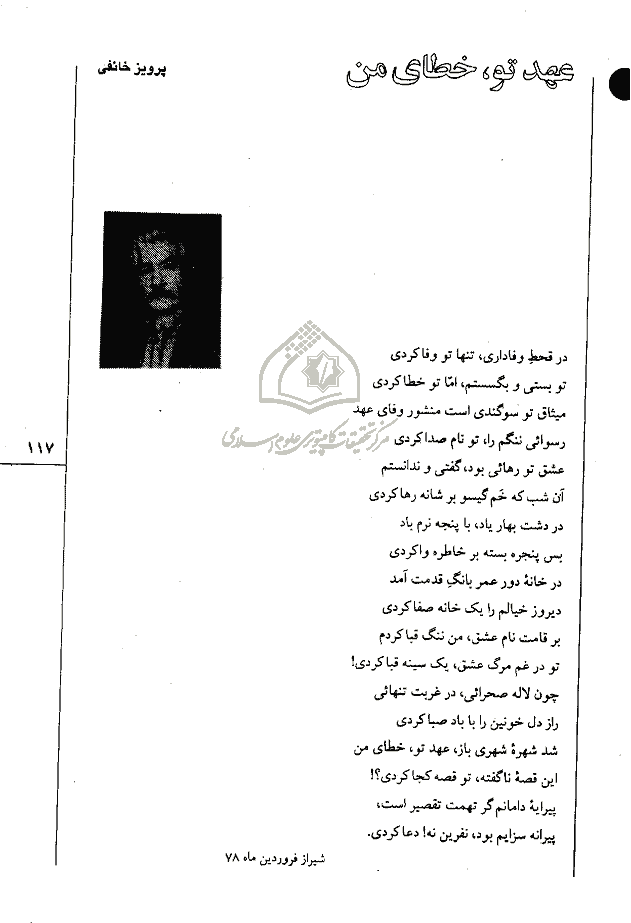 عهد تو، خطای من
پرویز خائفی
در قحطِ وفاداری، تنها تو وفا کردی
تو بستی و بگسستم، امّا تو خطا کردی
میثاق تو سوگندی است منشور وفای عهد
رسوائی ننگم را، تو نام صدا کردی
عشق تو رهائی بود، گفتی و ندانستم
آن شب که خَم گیسو بر شانه رها کردی
در دشت بهار یاد، با پنجه نرم باد
بس پنجره بسته بر خاطره وا کردی
در خانهٔ دور عمر بانگِ قدمت آمد
دیروز خیالم را یک خانه صفا کردی
بر قامت نام عشق، من ننگ قبا کردم
تو در غم مرگ عشق، یک سینه قبا کردی!
چون لاله صحرائی، در غربت تنهائی
راز دل خونین را با باد صبا کردی
شد شهرهٔ شهری باز، عهد تو، خطای من
این قصهٔ ناگفته، تو قصه کجا کردی؟!
پیرایهٔ دامانم گر تهمت تقصیر است،
پیرانه سزایم بود، نفرین نه! دعا کردی.
شیراز فروردین ماه ۷۸
۱۱۷
مرکز تحقیقات کامپیوتری علوم اسلامی